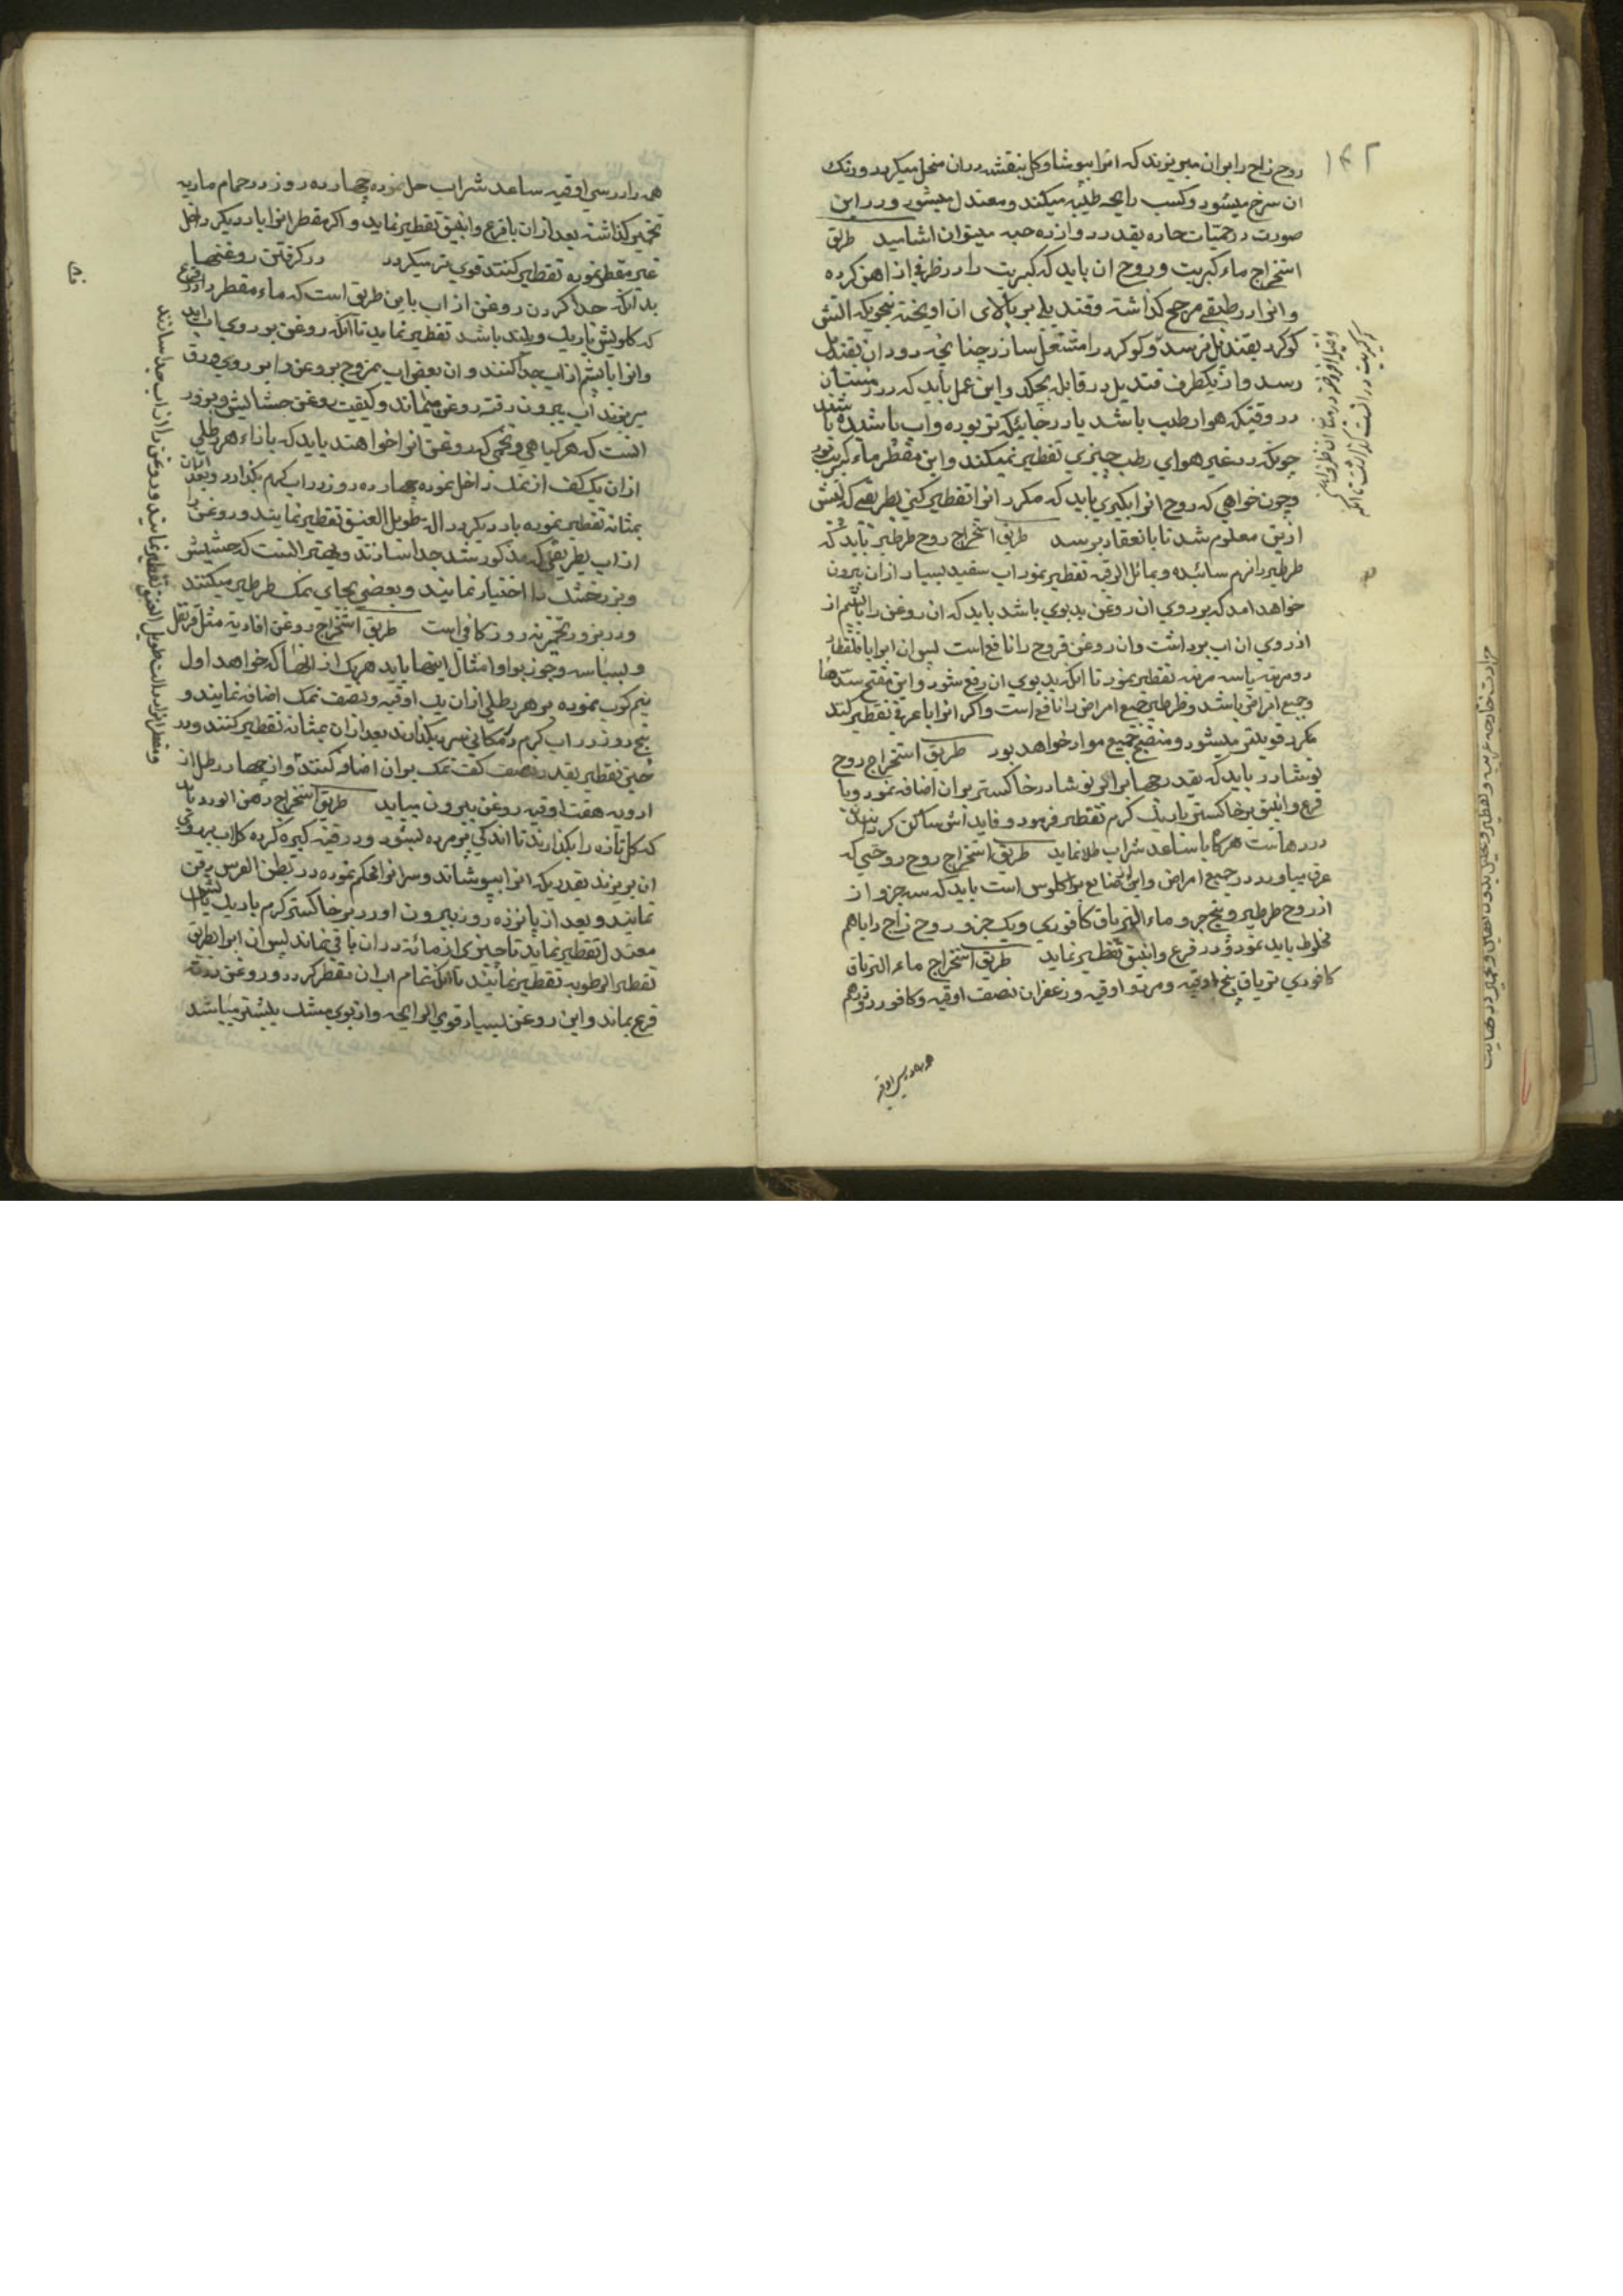 ۱۴۲
روح زاج را بران میریزند که انرا بپوشاند و کل بنفشه دران منحل میکردد و رنک
ان سرخ میشود و کسب رایحه طیّبه میکند و معتدل میشود و در این
صورت در حمیّات حاره بقدر دوازده حبه میتوان اشامید طریق
استخراج ماء کبریت و روح ان باید که کبریت را در ظرفی از اهن کرده
و انرا در طبقی کذاشته و قندیلی بر بالای ان اویخته بنحویکه اتش
کوکرد بقندیل نرسد و کوکرد را مشتعل سازد چنانچه دود ان بقندیل
رسد و از یکطرف قندیل در قابله بچکد و این عمل باید که در زمستان
در وقتیکه هوا رطب باشد یا در جائیکه تر بوده و اب پاشیده باشند
چونکه در غیر هوای رطب چیزی تقطیر نمیکند و این مقطر ماء کبریت بود
و چون خواهی که روح انرا بکیری باید که مکرر انرا تقطیر کنی بطریقی که پیش
ازین معلوم شد تا بانعقاد برسد طریق استخراج روح طرطیر باید که
طرطیر را نرم سائیده و بمائل الرقبه تقطیر نمود اب سفید بسیار ازان بیرون
خواهد امد که بر روی ان روغن بدبوی باشد باید که ان روغن را باپشم از
از روی ان اب برداشت و ان روغن قروح را نافع است پس ان ابرا با قلقطار
دو مرتبه یا سه مرتبه تقطیر نمود تا انکه بدبوی ان رفع شود و این مفتح سدّها
و جمیع امراض باشد و طرطیر جمیع امراض را نافع است و اکر انرا با عرقی تقطیر کنند
مکرر قویتر میشود و منضج جمیع مواد خواهد بود طریق استخراج روح
نوشادر باید که بقدر چهار برابر نوشادر خاکستر بران اضافه نمود و با
قرع و انبیق بر خاکستر باریک کرم تقطیر فرمود و فایده اش ساکن کردانیدن
دردهاست هرکاه با ساعد شراب طلا نماید طریق استخراج روح روحیی که
عرق بیاورد در جمیع امراض و این از صنایع براکلوس است باید که سه جزو از
از روح طرطیر و پنج جزو ماء التریاق کافوری و یک جزو روح زاج را باهم
مخلوط باید نمود و در قرع و انبیق تقطیر نماید طریق استخراج ماء التریاق
کافوری تریاق پنج اوقیه و مر دو اوقیه و زعفران نصف اوقیه و کافور دو درهم
همه را در سی اوقیه ساعد شراب حل نموده چهارده روز در حمام ماریه
تخمیر کذاشته بعد ازان با قرع و انبیق تقطیر نماید و اکر مقطر انرا بار دیکر داخل
غیر مقطر نموده تقطیر کنند قوی تر میکردد در کرفتن روغنها
بدانکه جدا کردن روغن از اب باین طریق است که ماء مقطر را در قرعی
که کلویش باریک و بلند باشد تقطیر نماید تا آنکه روغن بر روی اب اید
و انرا با پشم از اب جدا کنند و ان بعض اب ممزوج بروغن را بر روی ورق
بریزند اب بیرون رفته روغن میماند و کیفیت روغن حشایش و بزور
انست که هر کیاهی و تخمی که روغن انرا خواهند باید که بازاء هر رطلی
ازان یک کف از نمک داخل نموده چهارده روز در اب کرم بکذارد و بعد ازان
بمثانه تقطیر نموده بار دیکر در الة طویل العنق تقطیر نمایند و روغن را
از اب بطریقی که مذکور شد جدا سازند و بهتر انست که حشیش
و بزر خشک را اختیار نمایند و بعضی بجای نمک طرطیر میکنند
و در بزور تخمیر نه روز کافی است طریق استخراج روغن افادیه مثل قرنفل
و بسباسه و جوز بوا و امثال اینها باید هریک از انها که خواهد اول
نیم کوب نموده بر هر رطلی ازان یک اوقیه و نصف نمک اضافه نمایند و
پنج روز در اب کرم در مکانی سر بکذارند بعد ازان بمثانه تقطیر کنند و در
حین تقطیر بقدر نصف کف نمک بران اضافه کنند و از چهار رطل از
ادویه هفت اوقیه روغن بیرون میاید طریق استخراج دهن الورد باید
که کل تازه را بکذارند تا اندکی پژمرده بشود و در قنینه کبیره کرده کلاب بر روی
ان بریزند بقدریکه انرا بپوشاند و سر انرا محکم نموده در بطن الفرس دفن
نمایند و بعد از پانزده روز بیرون اورد بر خاکستر کرم باریک باتش
معتدل تقطیر نماید تا چیزی از مائه دران باقی نماند پس ان ابرا بطریق
تقطیر الرطوبه تقطیر نمایند تا انکه تمام اب ان مقطر کردد و روغن در ته
قرع بماند و این روغن بسیار قوی الرایحه و از بوی مشک بیشتر میباشد